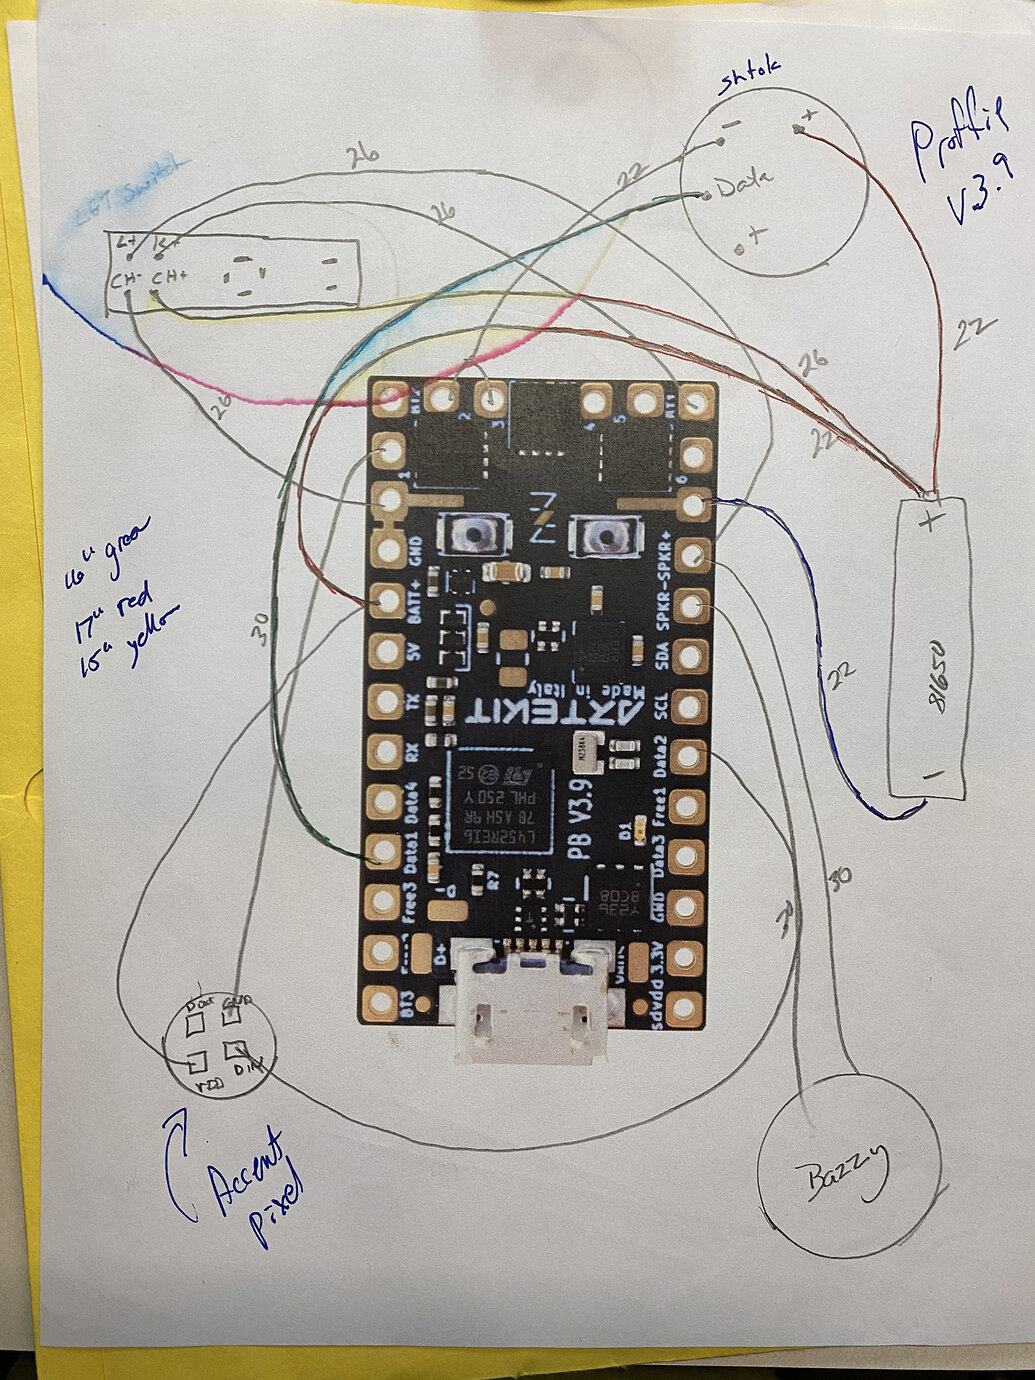 shtok
Proffie
V3.9
26
22
26
LGT Switch
L+
CH-
CH+
-
+
Data
+
22
26
22
20
BT2
2
3
4
5
BT1
1
6
GND
BATT+
5V
TX
RX
Data4
Data1
Free3
BT3
SPKR+
SPKR-
SDA
SCL
Data2
Free1
Data3
GND
3.3V
Made in Italy
AXTEKIT
PB V3.9
L452REI6
7B A5H 9R
PHL 250 Y
D1
R7
D-
D+
+
81650
-
22
16" green
17" red
15" yellow
30
30
30
Dout
GND
VDD
DIN
Accent
pixel
Bazzy